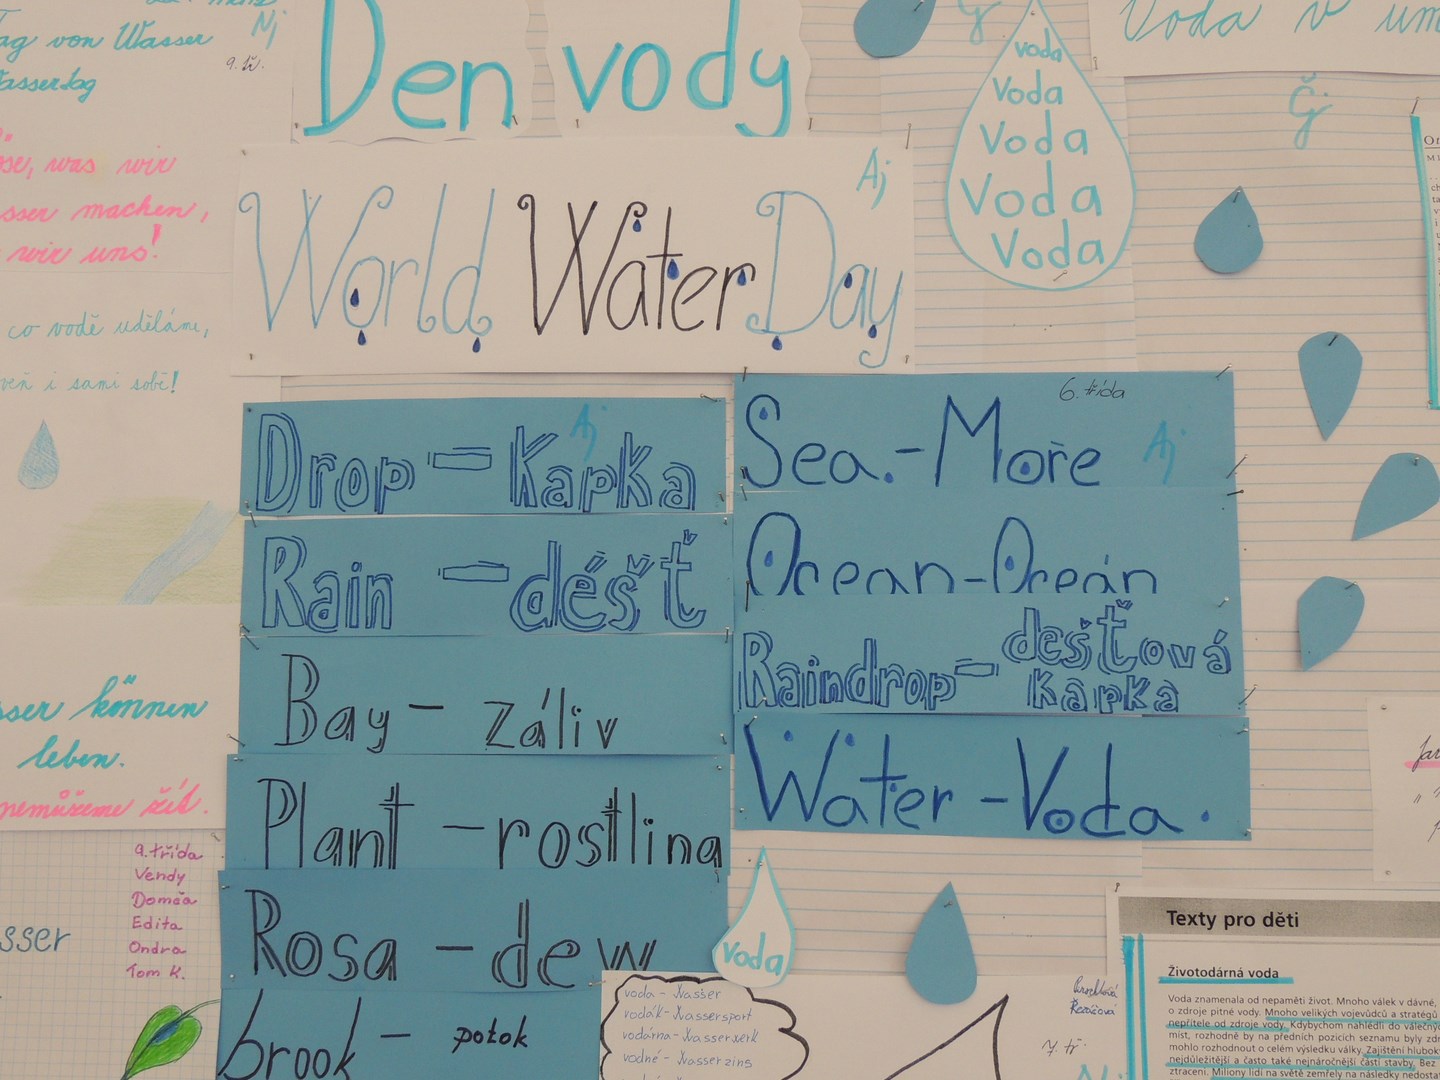 von Wasser
Nj
9. tř.
Den vody
voda
Voda
Voda
Voda
Voda
Voda v
Čj
Aj
World Water Day
was wir
machen,
wir uns!
co vodě uděláme,
i sami sobě!
Drop - Kapka
Aj
Rain - déšť
Bay - záliv
Plant - rostlina
Rosa - dew
brook - potok
6. třída
Sea - Moře
Aj
Ocean - Oceán
Raindrop - dešťová
kapka
Water - Voda.
können
leben.
nemůžeme žít.
9. třída
Vendy
Domča
Edita
Ondra
Tom K.
voda
voda - Wasser
vodák - Wassersport
vodárna - Wasserwerk
vodné - Wasserzins
7. tř.
Texty pro děti
Životodárná voda
Voda znamenala od nepaměti život. Mnoho válek v dávné,
o zdroje pitné vody. Mnoho velikých vojevůdců a stratégů
nepřítele od zdroje vody. Kdybychom nahlédli do válečných
míst, rozhodně by na předních pozicích seznamu byly
mohlo rozhodnout o celém výsledku války. Zajištění
nejdůležitější a často také nejnáročnější částí stavby. Bez
ztraceni. Miliony lidí na světě zemřely na následky